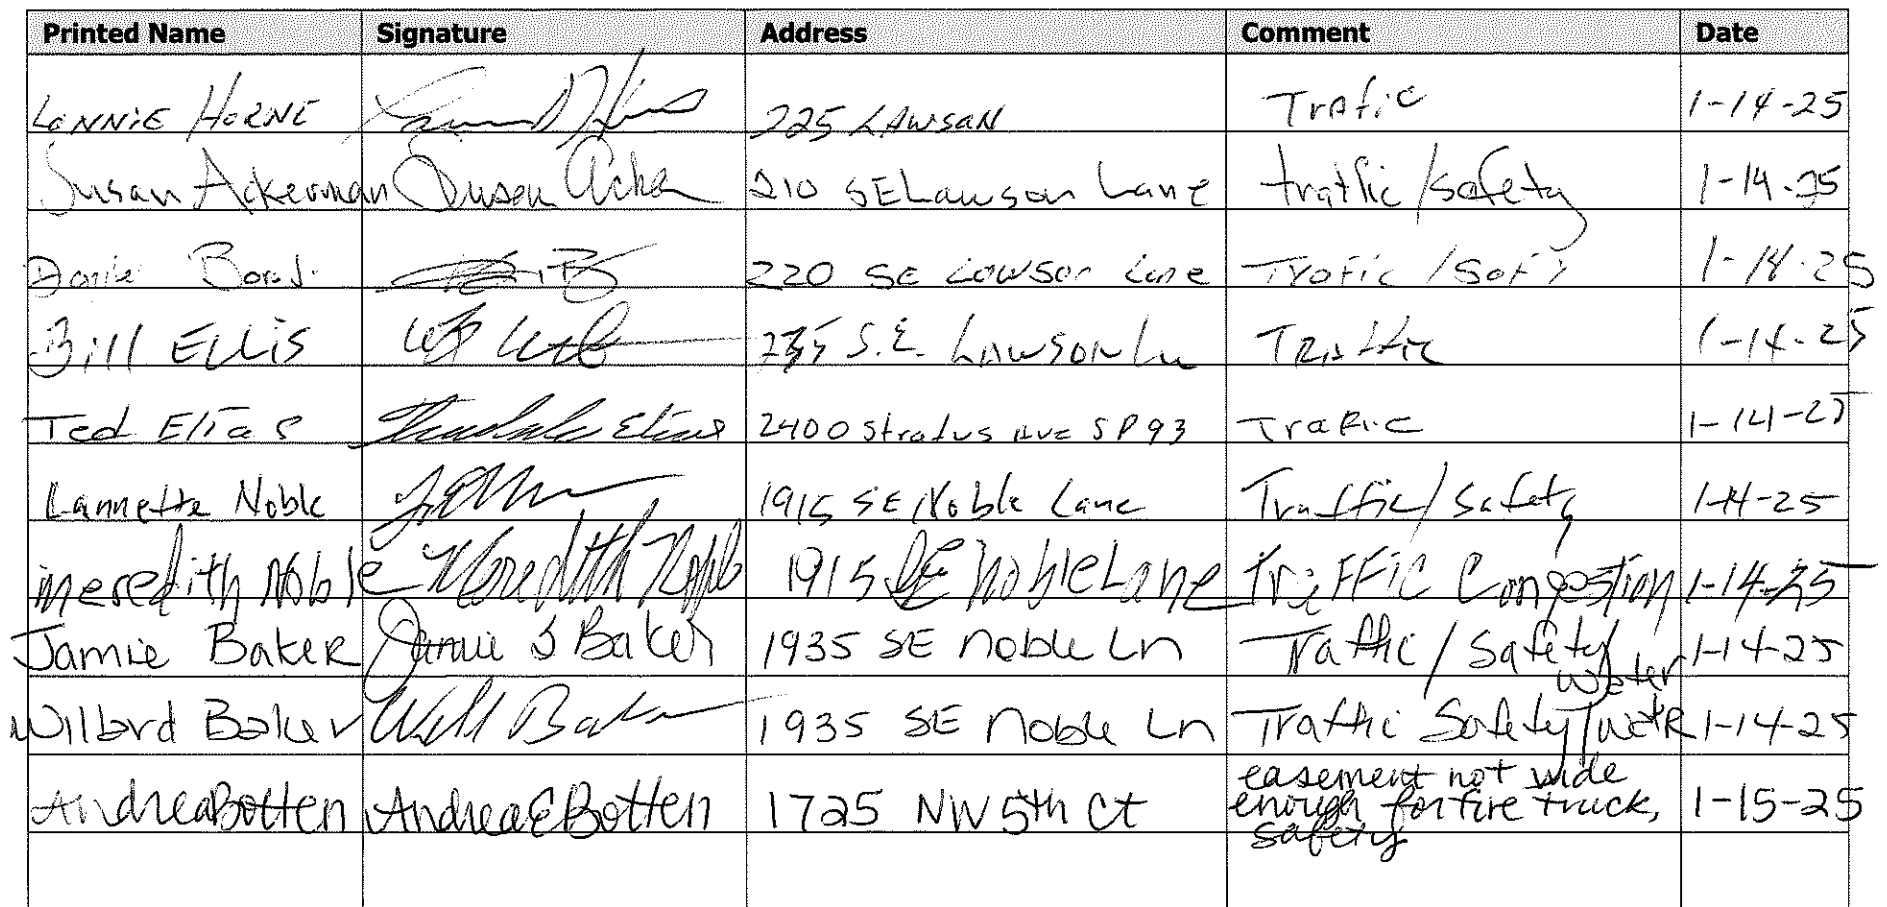 Printed Name Signature Address Comment Date
LONNIE HORNE 225 LAWSAN Trafic 1-14-25
Susan Ackerman Susan Acke 210 SE Lawson Lane traffic/safety 1-14-25
220 SE Lawson Lane Trafic / Safy 1-14-25
Bill ELLIS S.E. LAWSON Ln TRAffic 1-14-25
Ted Elias Elias 2400 Stratus Ave SP93 Traffic 1-14-25
Lannette Noble 1915 SE Noble Lane Traffic/Safety 1-14-25
meredith Noble Meredith Noble 1915 SE Noble Lane Traffic Congestion 1-14-25
Jamie Baker Jamie S Baker 1935 SE Noble Ln Traffic / Safety/ 1-14-25
water
Willard Baker Will Baker 1935 SE Noble Ln Traffic Safety/watR 1-14-25
Andrea Botten Andrea E Botten 1725 NW 5th Ct easement not wide 1-15-25
enough for fire truck,
safety